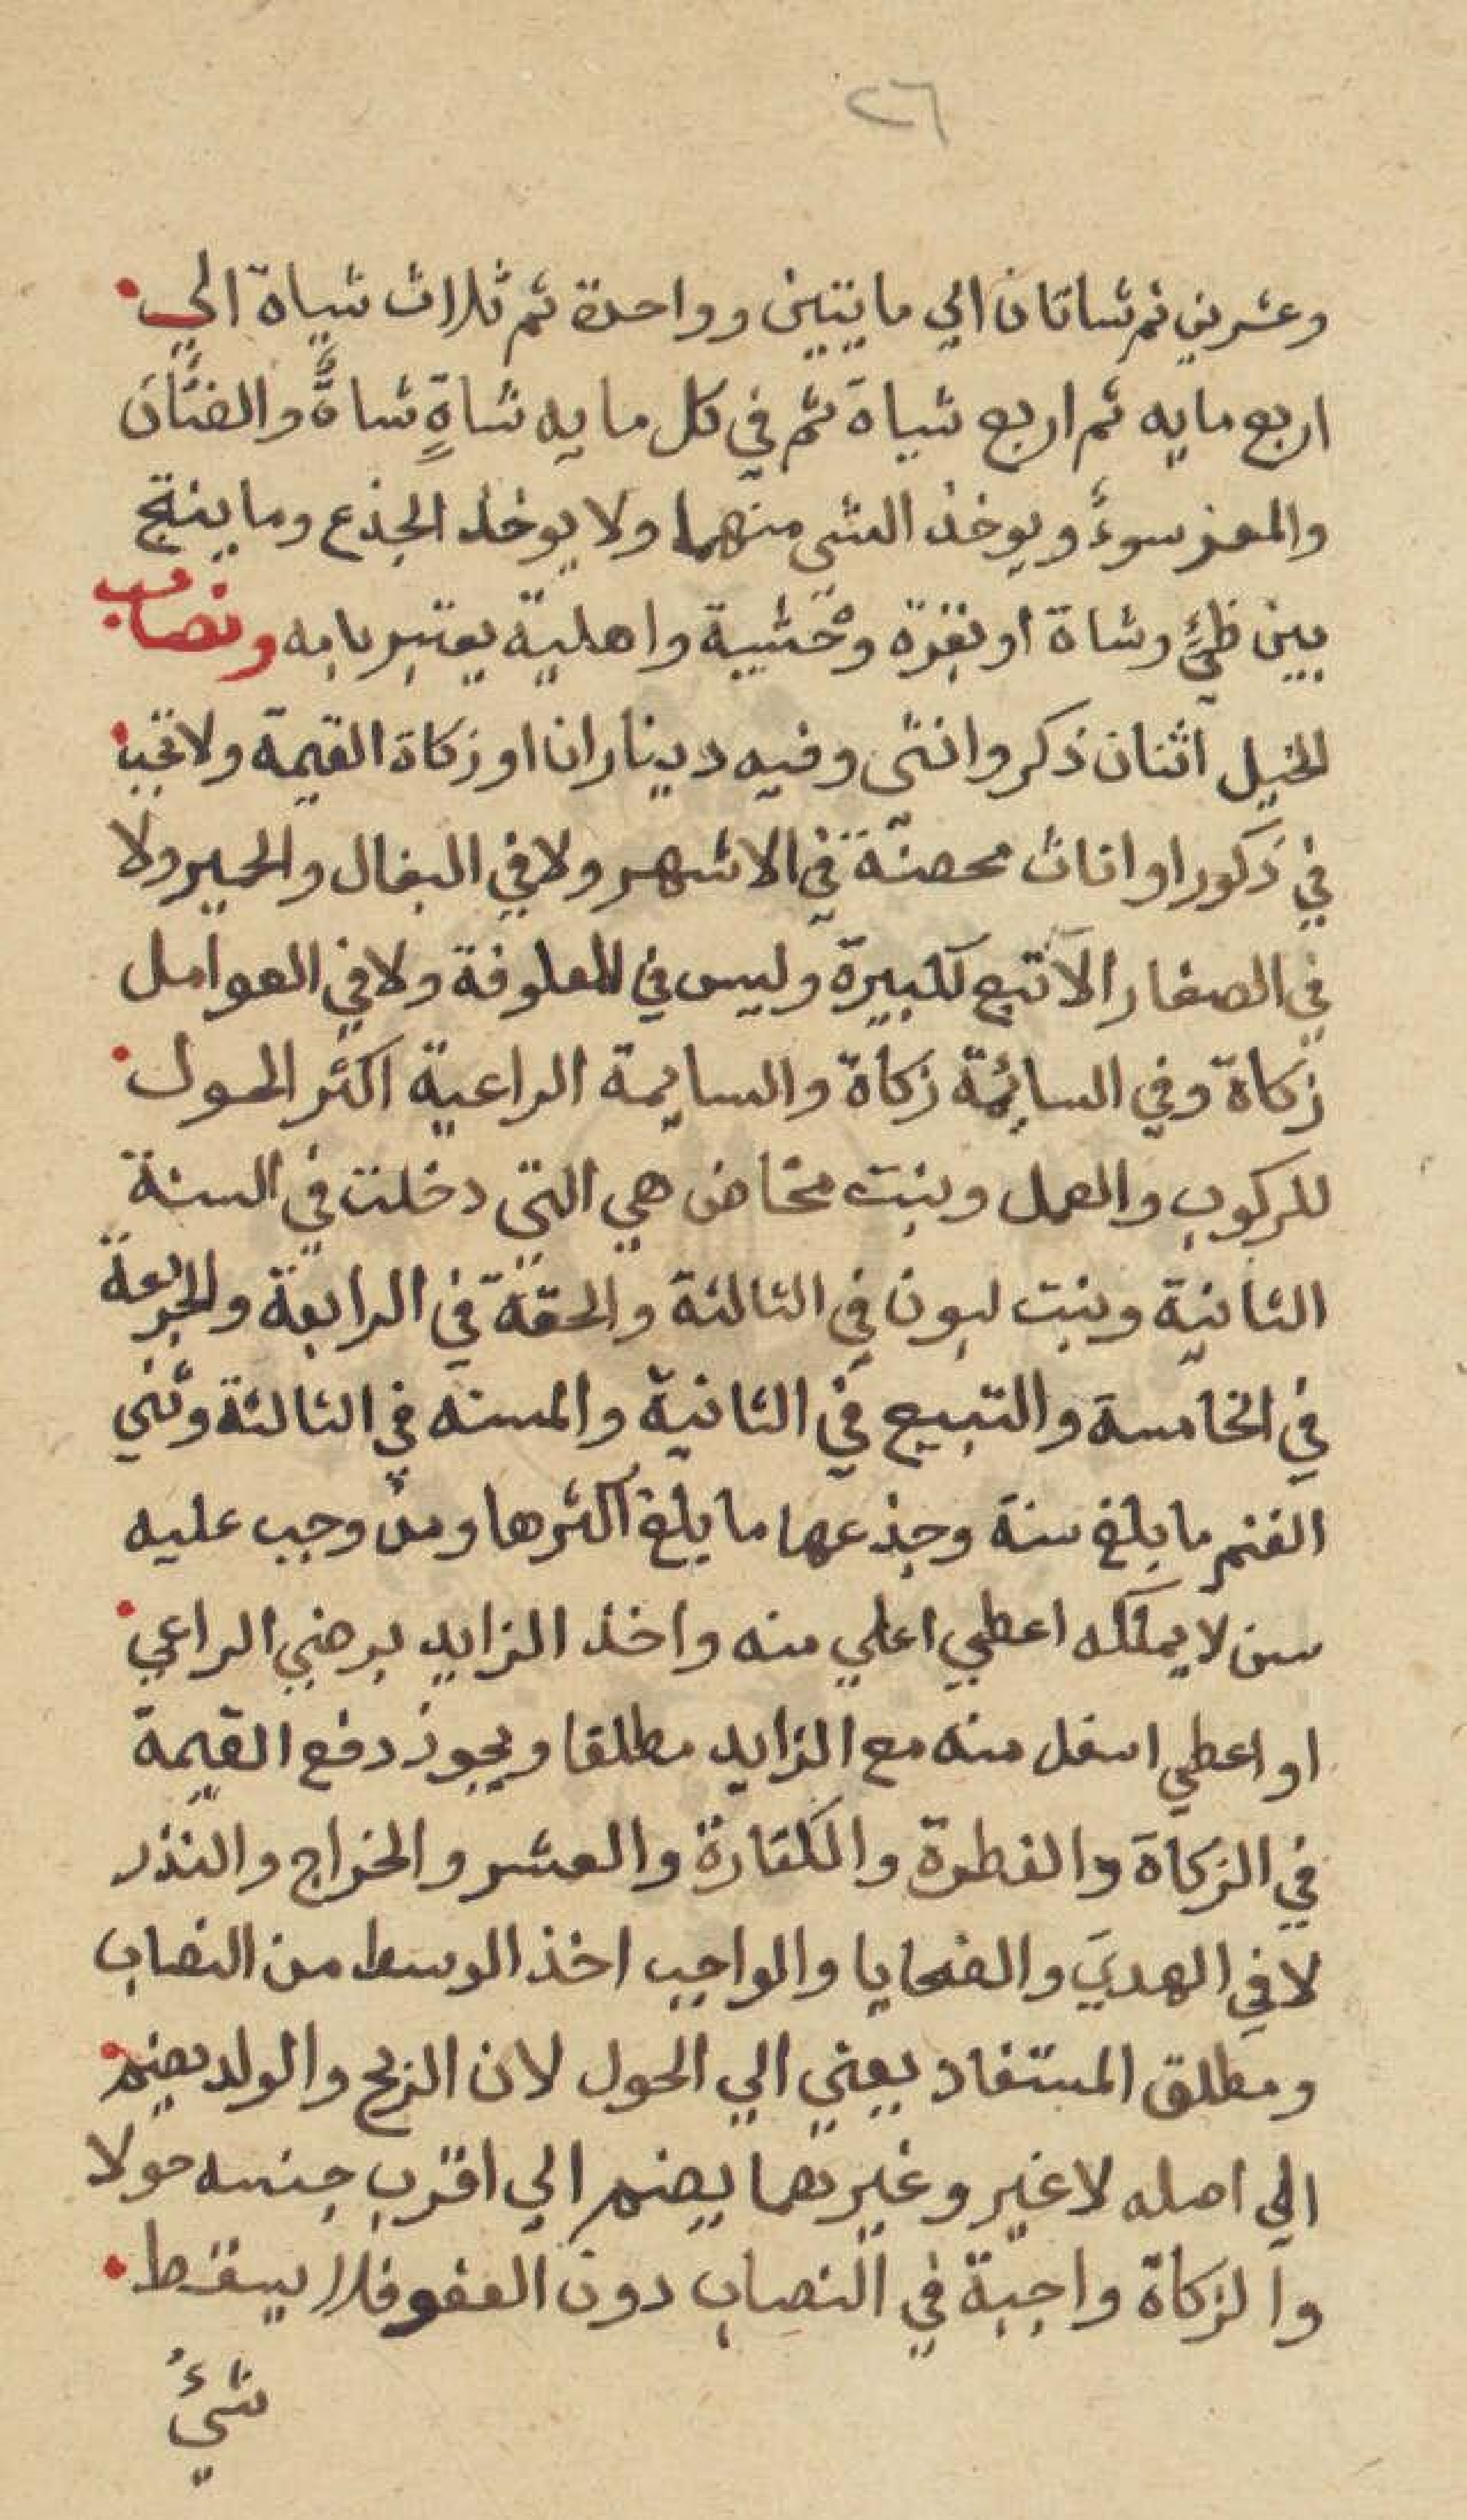 ٢٦
وعشرين ثم شاتان الي مايتين وواحدة ثم ثلاث شياة الي
اربع مايه ثم اربع شياة ثم في كل مايه شاةٍ شاةٌ والضأن
والمعز سوءً ويوخذ الثني منهما ولا يوخذ الجذع وما ينتج
بين ظبيٍ وشاة او بقرة وحشية واهلية يعتبر بامه ونصاب
الخيل اثنان ذكر وانثى وفيه ديناران او زكاة القيمة ولا تجب
في ذكور او اناث محصنة في الاشهر ولا في البغال والحمير ولا
في الصغار الا تبع لكبيرة وليس في المعلوفة ولا في العوامل
زكاة وفي السائمة زكاة والسايمة الراعية اكثر الحول
للركوب والعمل وبنت مخاض هي التي دخلت في السنة
الثانية وبنت لبون في الثالثة والحقة في الرابعة والجزعة
في الخامسة والتبيع في الثانية والمسنه في الثالثة وثني
الغنم ما بلغ سنة وجذعها ما بلغ اكثرها ومن وجب عليه
سن لا يملكه اعطي اعلي منه واخذ الزايد برضي الراعي
او اعطي اسفل منه مع الزايد مطلقا ويجوز دفع القيمة
في الزكاة والفطرة والكفارة والعشر والخراج والنذر
لا في الهدي والضحايا والواجب اخذ الوسط من النصاب
ومطلق المستفاد يعني الي الحول لان الربح والولد يضم
الي اصله لا غير وغيرهما يضم الي اقرب جنسه حولا
والزكاة واجبة في النصاب دون العفو فلا يسقط
شيءُ